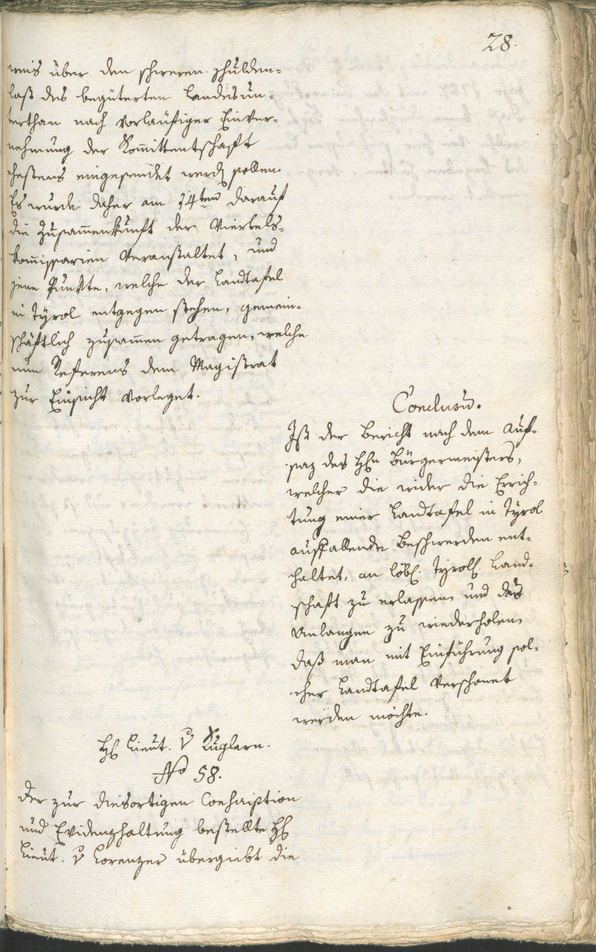 28.
weis über den schweren Schulden-
last des begüterten Landesun-
terthan nach vorläufiger Einver-
nehmung der Kommittentschaft
ehestens eingesendet werden sollen
Es wurde daher am 14ten darauf
die Zusammenkunft der Viertels-
kommissarien veranstaltet, und
jene Punkte, welche der Landtafel
in Tyrol entgegen stehen, gemein-
schäftlich zusammen getragen, welche
nun Referens dem Magistrat
zur Einsicht vorleget.
Conclusum.
Ist der Bericht nach dem Auf-
saz des Hn Bürgermeisters,
welcher die wider die Errich-
tung einer Landtafel in Tyrol
auffallende Beschwerden ent-
haltet, an löbl. tyrols. Land-
schaft zu erlassen und das
Anlangen zu wiederholen,
daß man mit Einführung sol-
cher Landtafel verschonet
werden möchte.
H Lieut. v Kuglern.
No 58.
Der zur diesortigen Conscription
und Evidenzhaltung bestellte H
Lieut. v Lorenzer übergiebt die